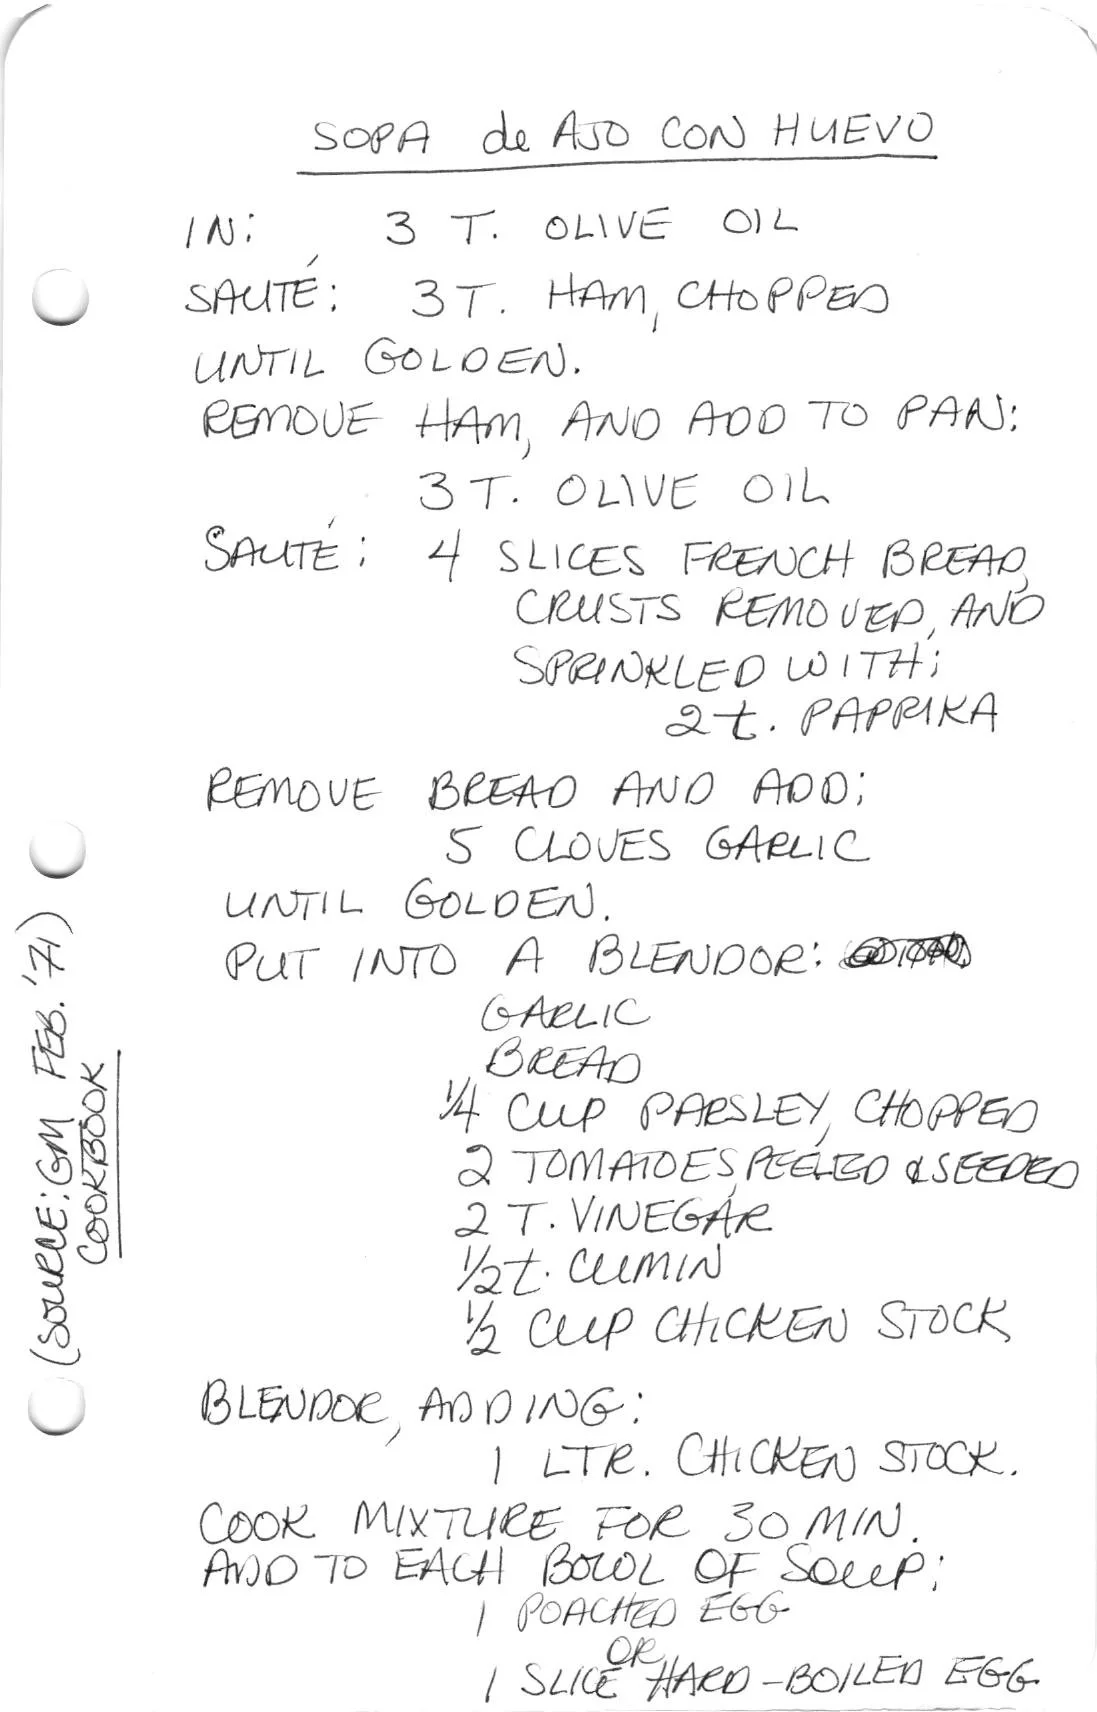 SOPA de AJO CON HUEVO
IN: 3 T. OLIVE OIL
SAUTÉ: 3 T. HAM, CHOPPED
UNTIL GOLDEN.
REMOVE HAM, AND ADD TO PAN:
3 T. OLIVE OIL
SAUTÉ: 4 SLICES FRENCH BREAD,
CRUSTS REMOVED, AND
SPRINKLED WITH:
2 t. PAPRIKA
REMOVE BREAD AND ADD:
5 CLOVES GARLIC
UNTIL GOLDEN.
PUT INTO A BLENDOR:
GARLIC
BREAD
1/4 CUP PARSLEY, CHOPPED
2 TOMATOES, PEELED & SEEDED
2 T. VINEGAR
1/2 t. CUMIN
1/2 CUP CHICKEN STOCK
BLENDOR, ADDING:
1 LTR. CHICKEN STOCK.
COOK MIXTURE FOR 30 MIN.
ADD TO EACH BOWL OF SOUP:
1 POACHED EGG
OR
1 SLICE HARD-BOILED EGG
(SOURCE: GM FEB. '71)
COOKBOOK